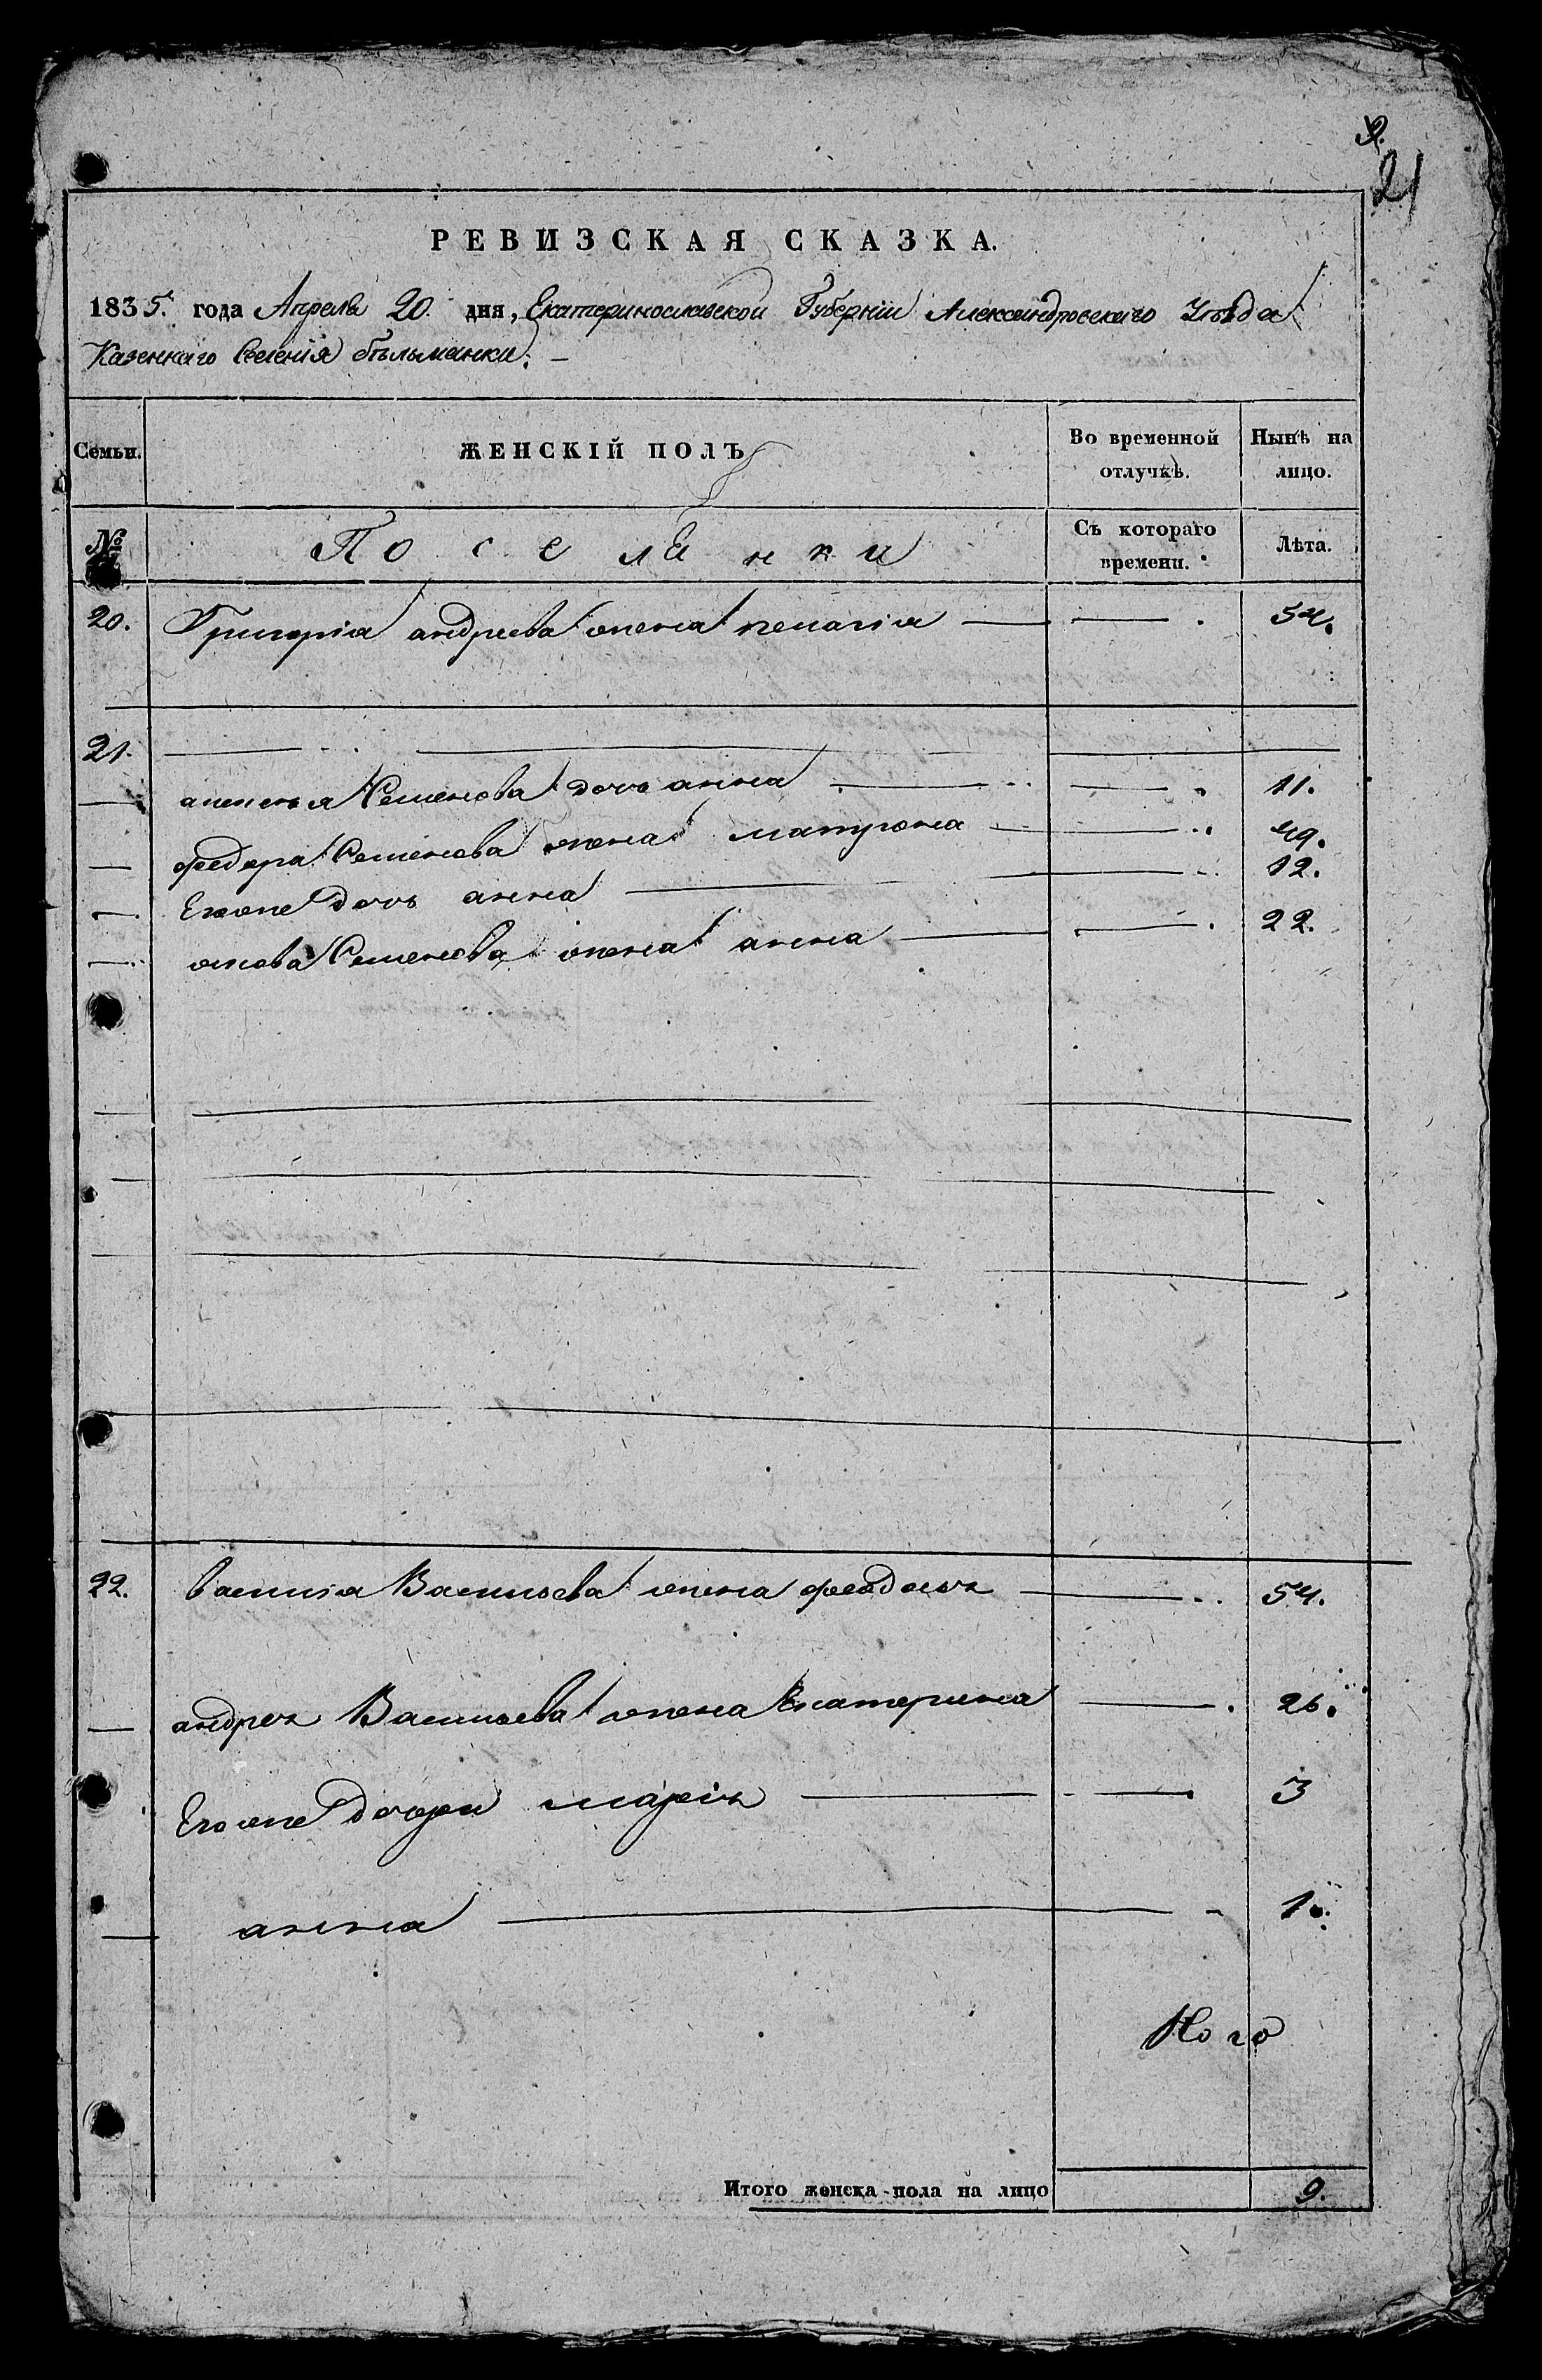 9.
21
РЕВИЗСКАЯ СКАЗКА.
1835. года Апреля 20. дня, Екатеринославской Губерніи Александровскаго Уезда
Казеннаго Селенія белманки. —
Семьи. ЖЕНСКІЙ ПОЛЪ Во временной отлучкѣ. Нынѣ на лицо.
№ Поселянки Съ котораго времени. Лѣта.
20. Григорія андреева жена пелагія — — . 54.
21. — —
— алексѣя Семенова дочь анна — — 11.
— федора Семенова жена матрона — — 49.
— Егоже дочь анна — — 12.
— Семенова жена анна — — . 22.
22. василия Васильева жена феодосія — — 54.
— андрея Васильева жена Екатерина — . 26.
Егоже дочери марія — — 3
— анна — — 1.
Итого женска-пола на лицо 9.